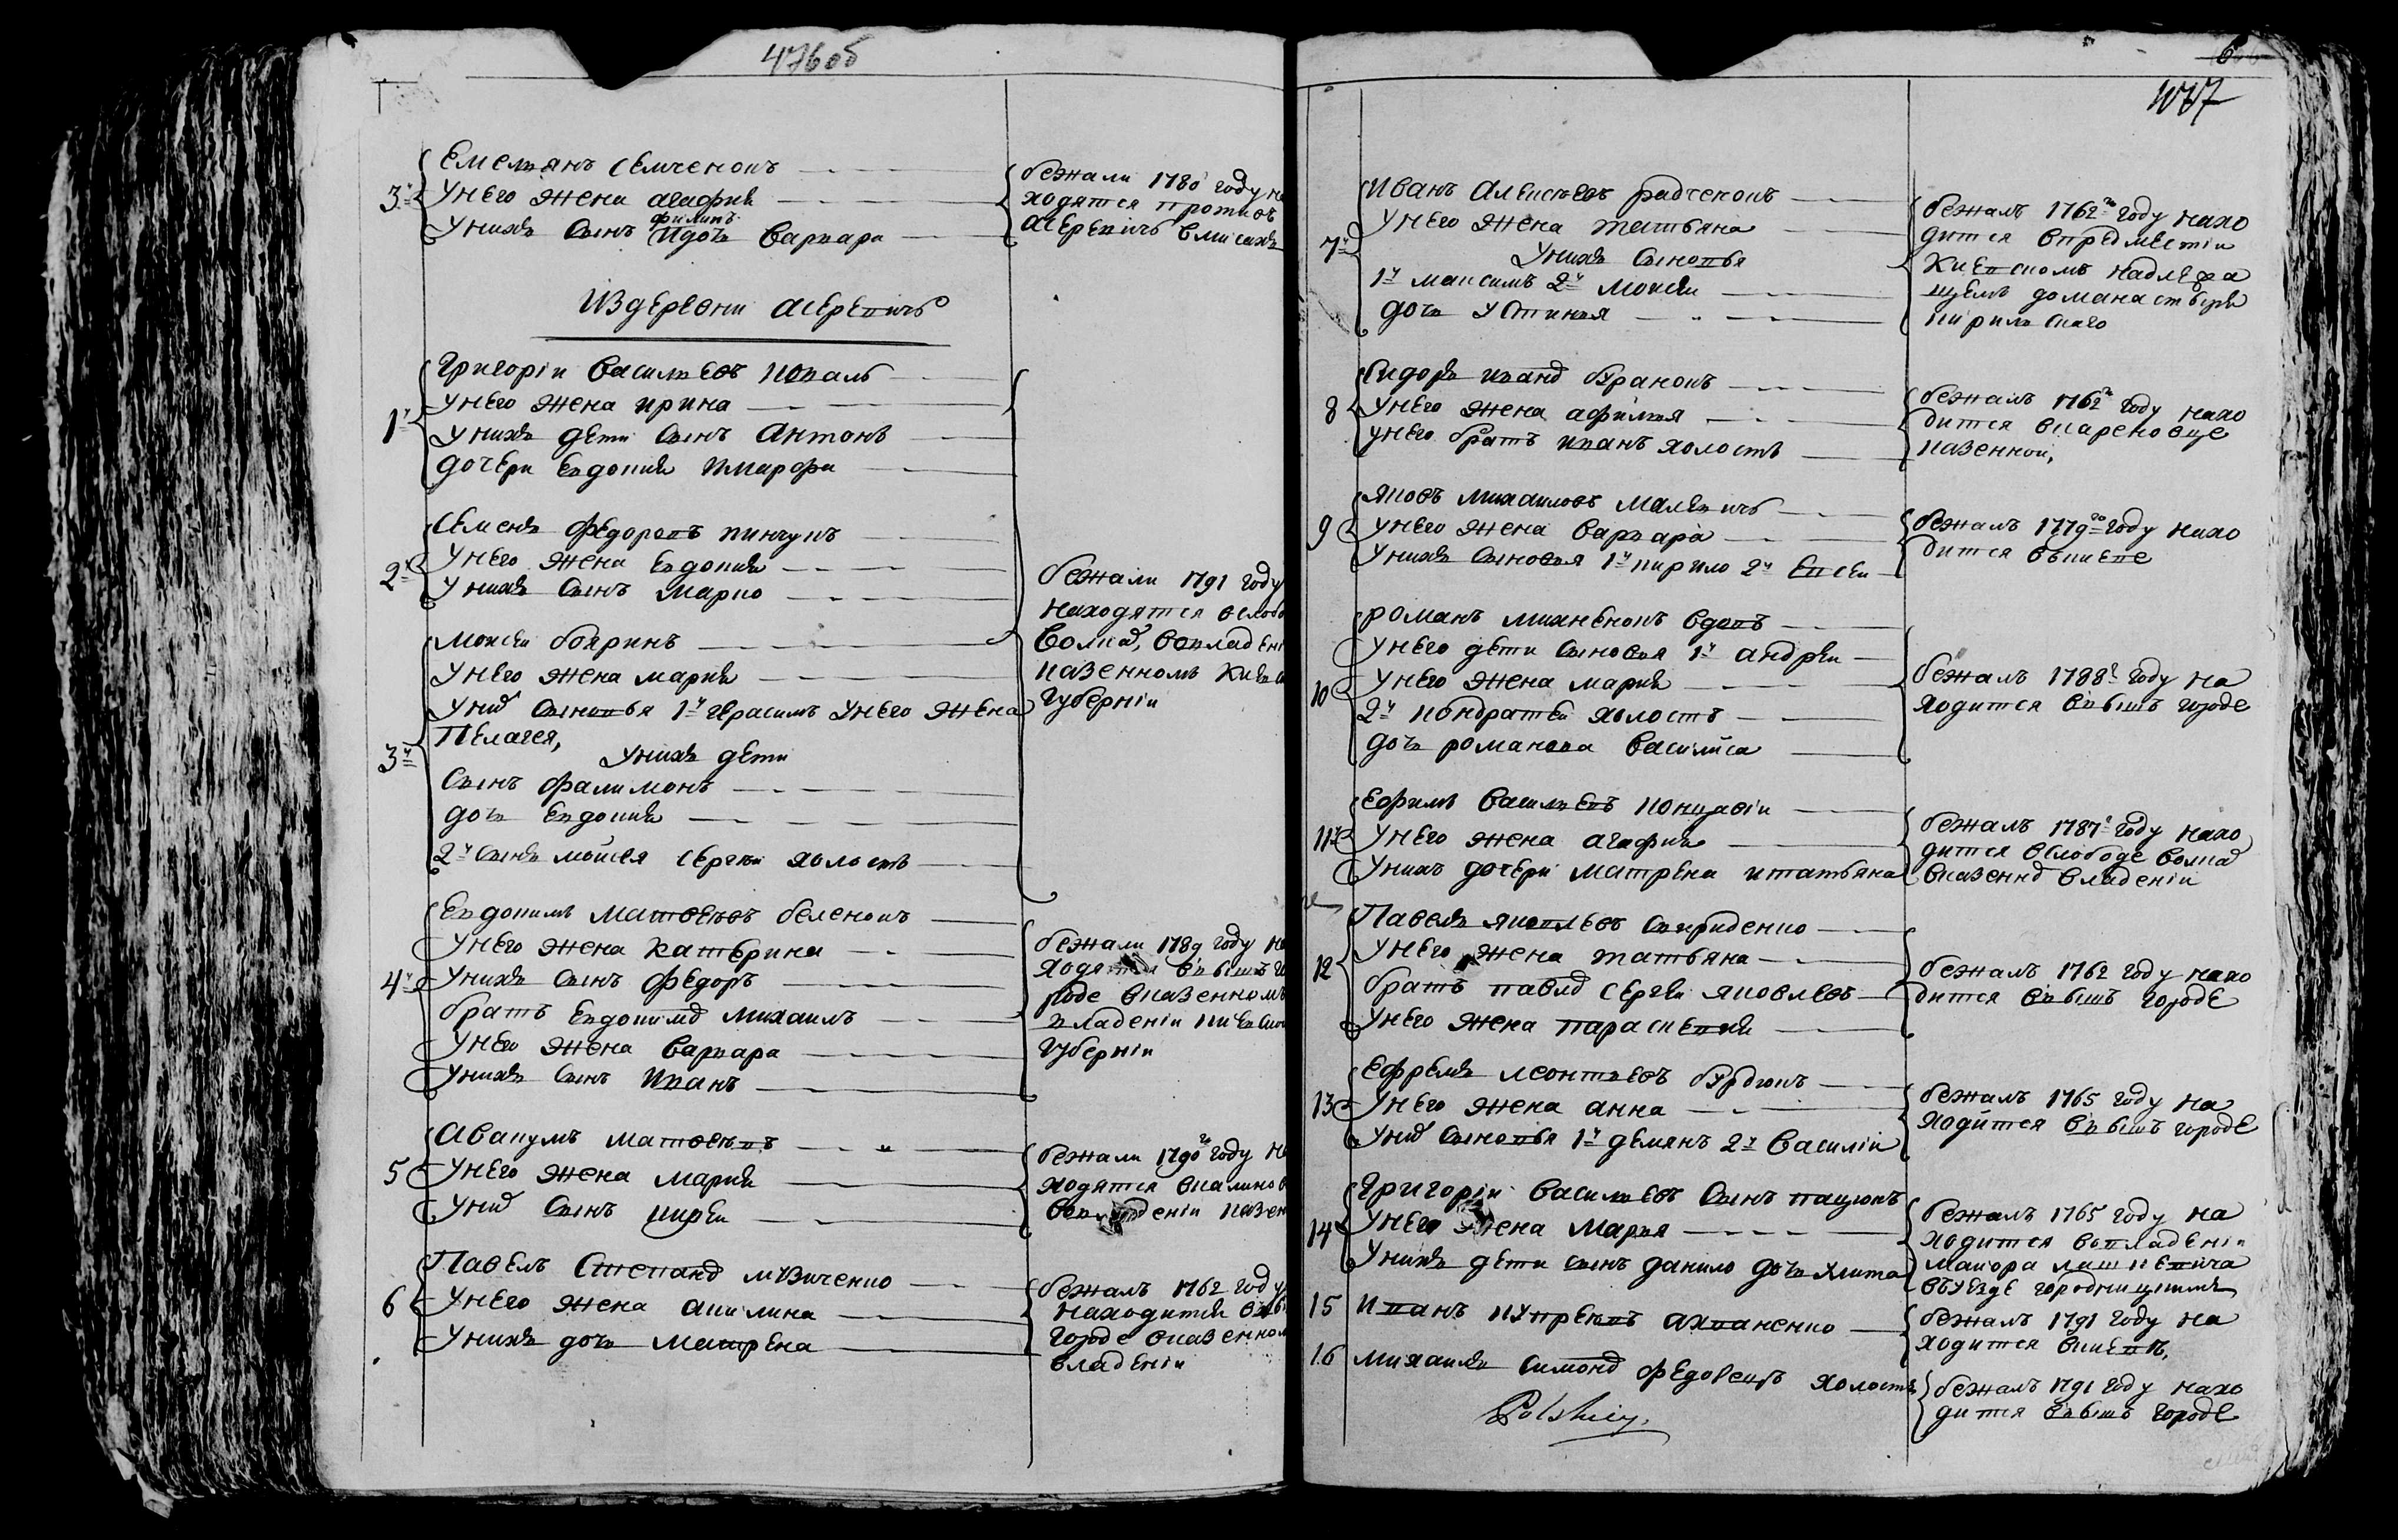 476об
3й Емельянъ Семченокъ
У него жена агафия
филипъ
У нихъ Сынъ И дочь Варвара
бежали 1780 году на
ходятся протиоъ
асеревичъ
Из деревни асеревичъ
1й Григории Васильевъ коваль
У него жена ирина
У нихъ дети Сынъ Антонъ
дочери Евдокия и марфа
2й Семенъ Федоровъ пинчукъ
У него жена Евдокия
У нихъ Сынъ Марко
Моисеи бояринъ
У него жена мария
У них Сыновья 1й герасимъ У него жена
Пелагея,
3й У нихъ дети
Сынъ Фалимонъ
дочь Евдокия
2й Сынъ мойсея Сергеи холостъ
бежали 1791 году
находятся в слобо
Волках, во владени
казенномъ Киевс
Губернии
4й Евдокимъ Матвеевъ беленокъ
У него жена Катерина
У нихъ Сынъ Федоръ
братъ Евдокима михаилъ
У него жена Варвара
У нихъ Сынъ Иванъ
бежали 1789 году на
ходятся го
роде в казенномъ
владении киевско
Губернии
5 Авакумъ матвеевъ
У него жена мария
У них Сынъ кирей
бежали 1790го году на
ходятся
во владении казен
6 Павелъ Степанов
У него жена акилина
У нихъ дочь матрена
бежалъ 1762 году
находится
городе в казенном
владении
477
7й Иванъ алексеевъ радченокъ
У него жена татьяна
У нихъ Сыновья
1й максимъ 2й Моисеи
дочь Устинья
бежалъ 1762го году нахо
дится в предместии
Киевскомъ надлежа
щемъ до манастыря
кирилскаго
8 Сидоръ иванов буракокъ
У него жена афимья
У него братъ иванъ холостъ
бежалъ 1762го году нахо
дится
казенной,
9 Яковъ михаиловъ малевичъ
У него жена Варвара
У нихъ Сыновья 1й кирило 2й Евсеи
бежалъ 1779го году нахо
дится въ киеве
10 Романъ михненокъ вдовъ
У него дети Сыновья 1й андреи
У него жена мария
2й кондратей холостъ
дочь романова Василиса
бежалъ 1788го году на
ходится городе
11й Ефимъ Васильевъ
У него жена агафия
У нихъ дочери матрена и татьяна
бежалъ 1787го году нахо
дится в слободе Волках
в казенном владении
12 Павелъ яковлевъ Свириденко
У него жена татьяна
братъ павла Сергеи яковлевъ
У него жена параскевия
бежалъ 1762 году нахо
дится городе
13 Ефремъ леонтьевъ бурдюкъ
У него жена анна
У них Сыновья 1й демянъ 2й Василии
бежалъ 1765 году на
ходится городе
14 Григории Васильевъ Сынъ пацюкъ
У него жена Марья
У нихъ дети сынъ данило дочь
бежалъ 1765 году на
ходится во владении
маиора
въ уезде городницкимъ
15 Иванъ
бежалъ 1791 году на
ходится в киеве,
16 Михаила Симонов Федовецъ холостъ
бежалъ 1791 году нахо
дится городе